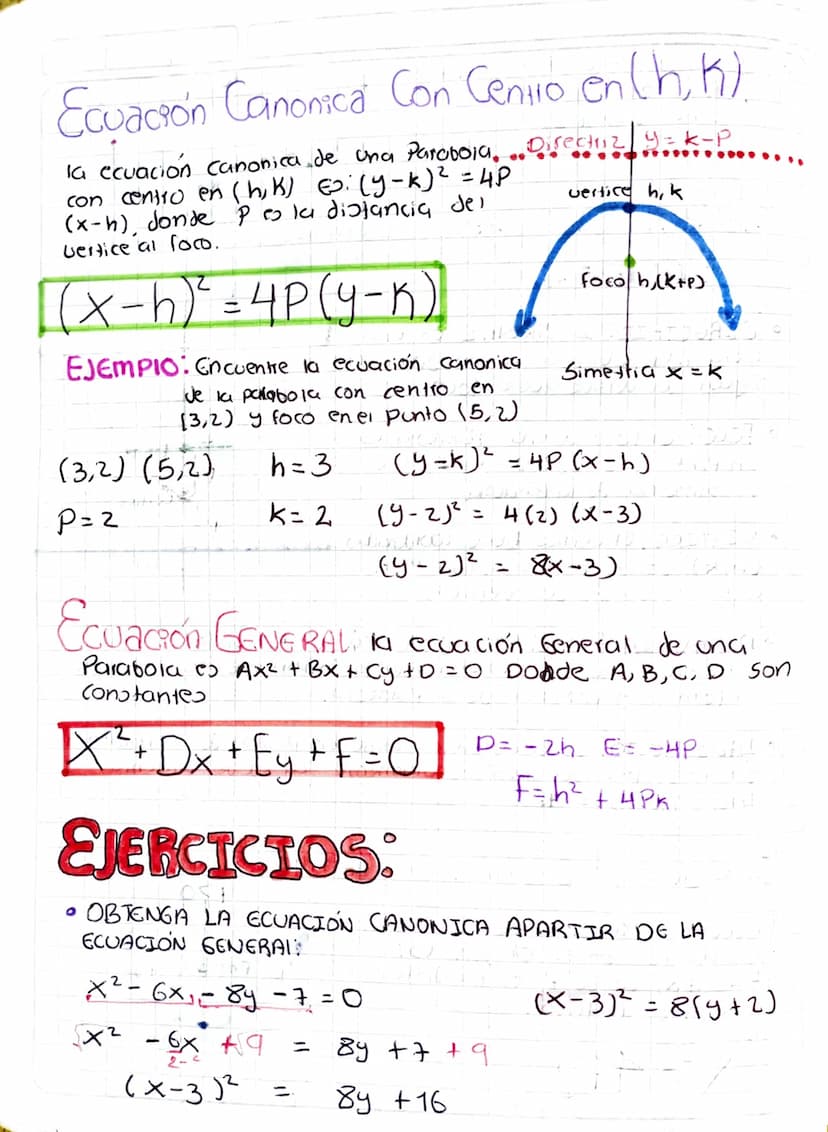 Ecuación Canonica Con Centro en (h, K)
la ecuación canonica de una Parabola
con centro en (h, K) es: (y-k)² = 4P
(x-h), donde P es la distancia del
vertice al foco.
Directriz y = k-P
vertice h, k
foco h,(K+P)
Simetria x = k
(x-h)² = 4P(y-k)
EJEMPlO: Encuentre la ecuación canonica
de la parabola con centro en
(3,2) y foco en el punto (5,2)
(3,2) (5,2) h = 3 (y-k)² = 4P (x-h)
P = 2 k = 2 (y-2)² = 4(2) (x-3)
(y-2)² = 8(x-3)
Ecuación GENERAL la ecuación General de una
Parabola es Ax² + Bx + Cy + D = 0 Donde A, B, C, D son
constantes
X² + Dx + Ey + F = 0
D = -2h E = -4P
F = h² + 4Pk
EJERCICIOS:
• OBTENGA LA ECUACIÓN CANONICA APARTIR DE LA
ECUACIÓN GENERAl:
x² - 6x - 8y - 7 = 0 (x-3)² = 8(y+2)
x² - 6x + 9 = 8y + 7 + 9
(x-3)² = 8y + 16